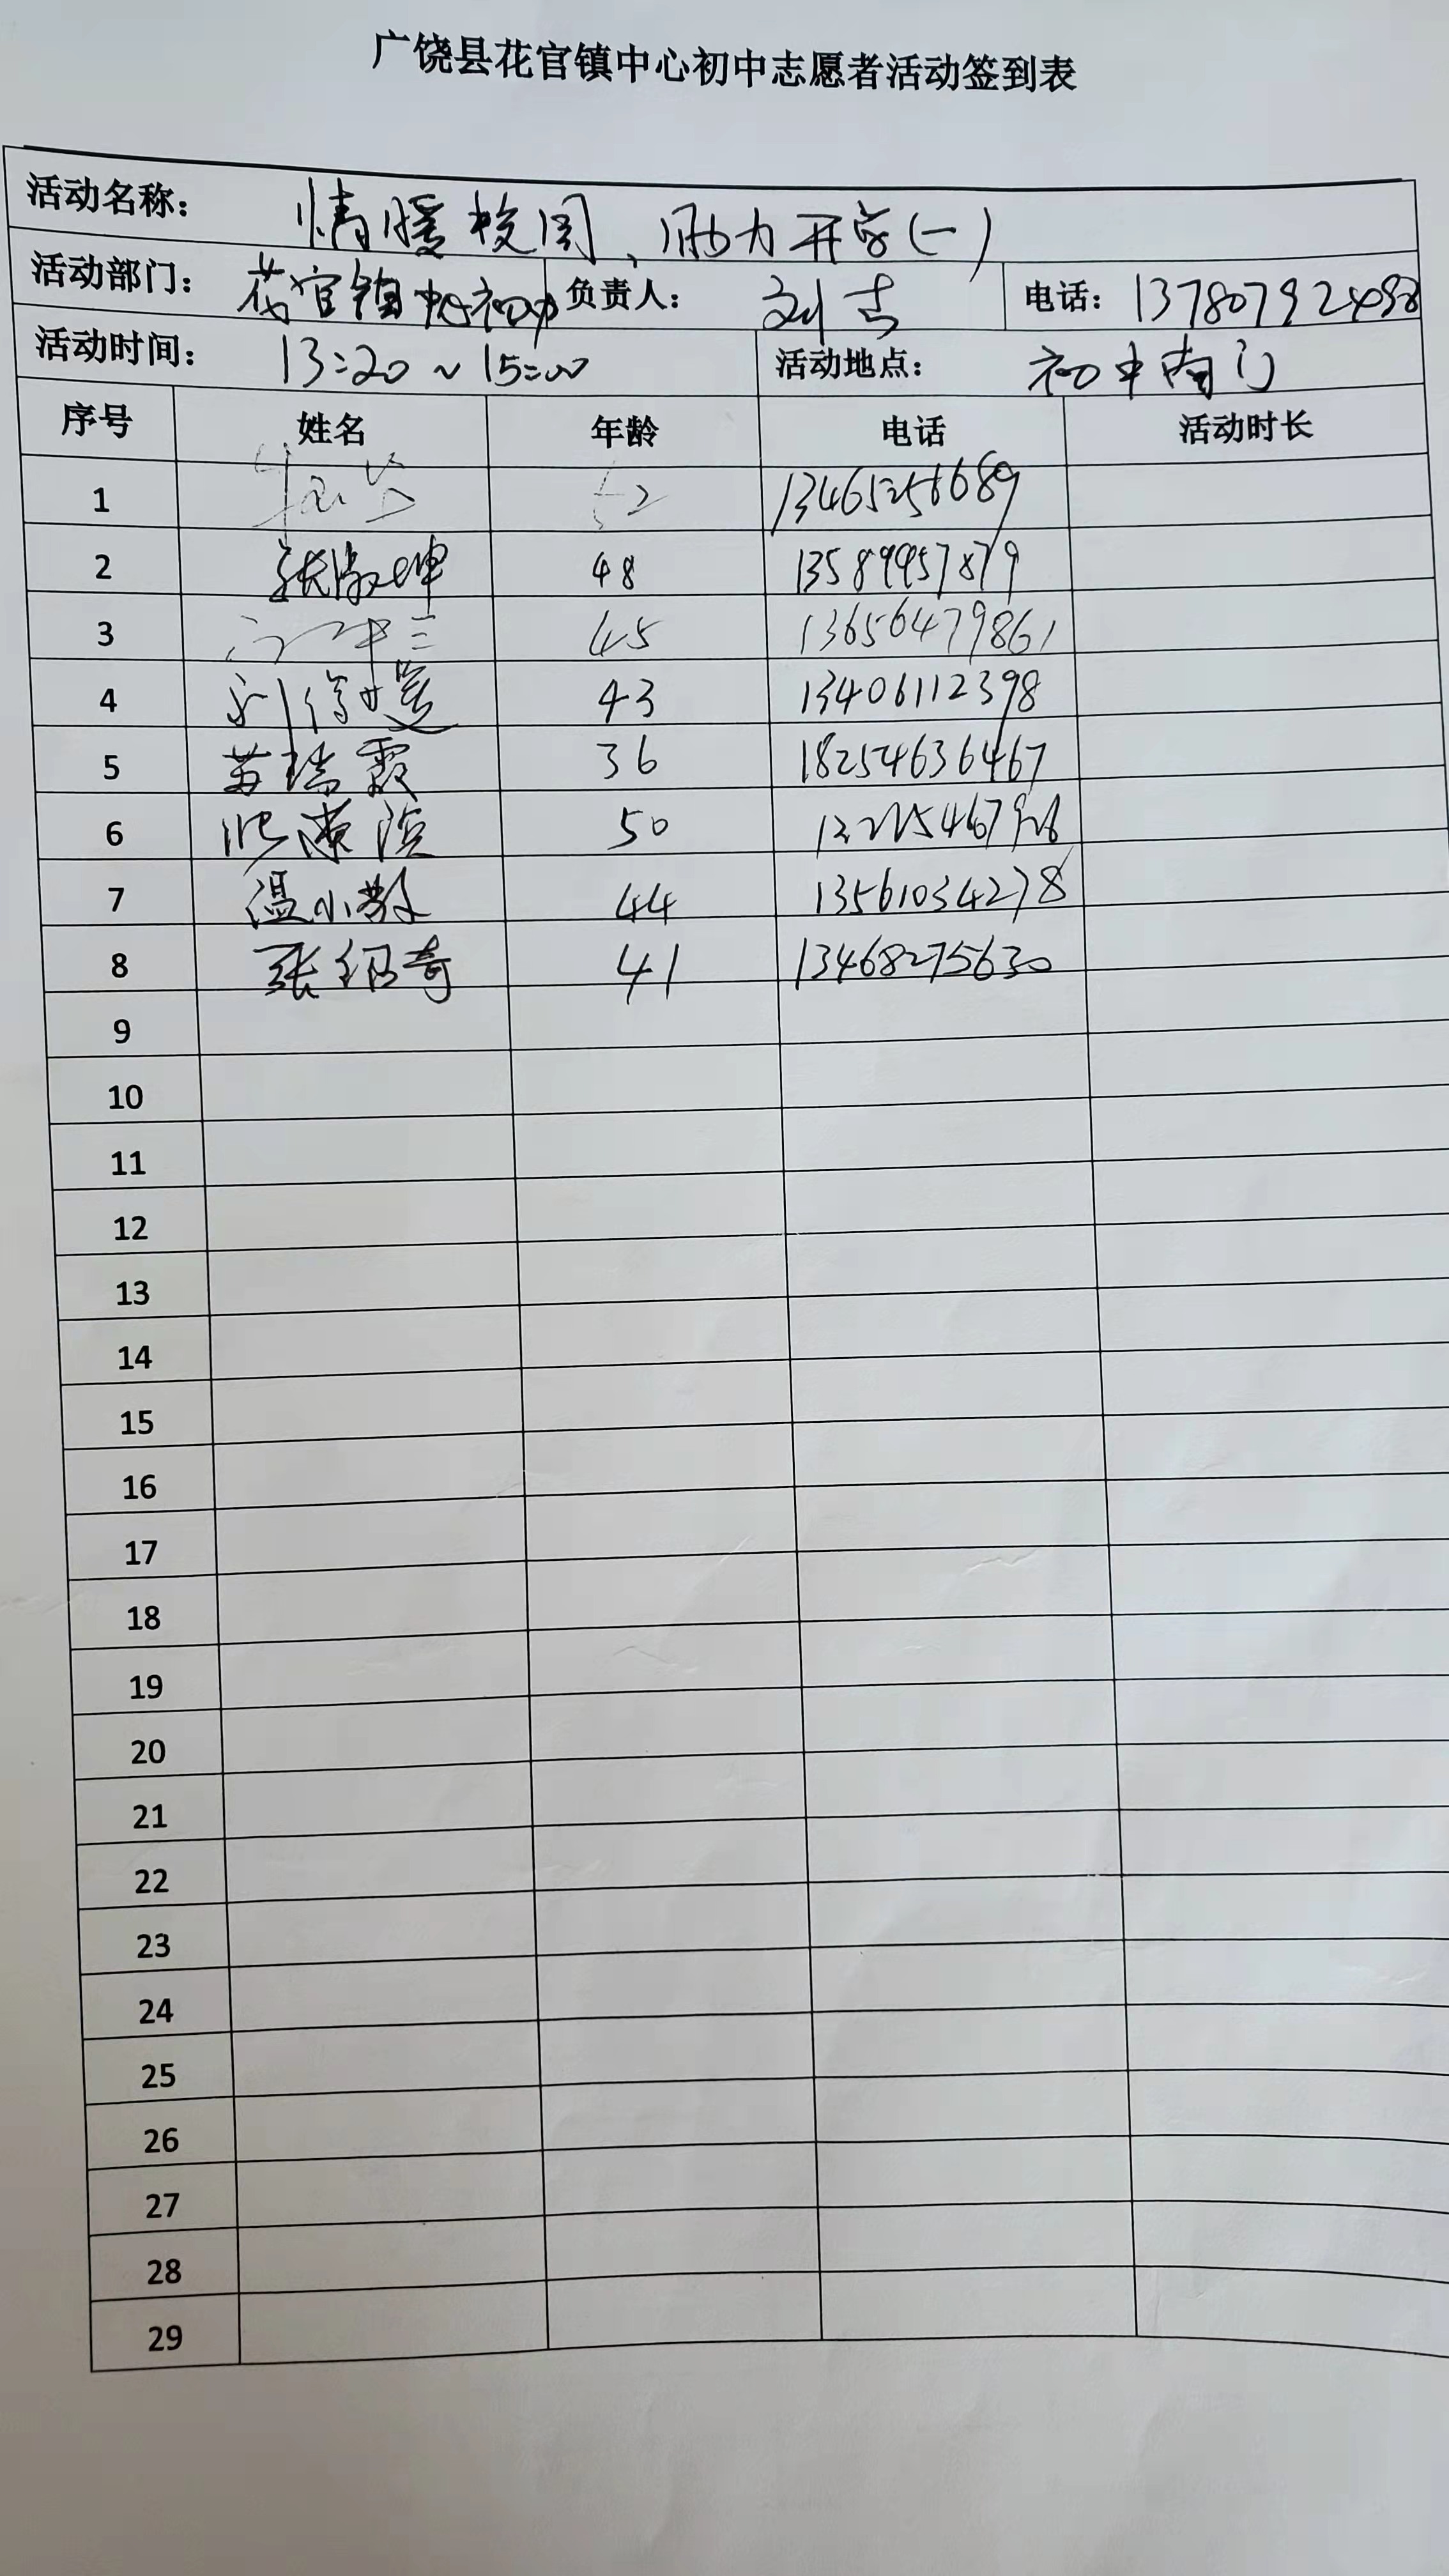 广饶县花官镇中心初中志愿者活动签到表
活动名称： 情暖校园、助力开学(一)
活动部门： 花官镇中心初中 负责人： 刘吉 电话： 13780792498
活动时间： 13:20~15:00 活动地点： 初中南门
序号 姓名 年龄 电话 活动时长
1 52
2 48 13589957879
3 45 13656479861
4 43 13406112398
5 苏瑞霞 36 18254636467
6 50
7 温小教 44 13561034278
8 张绍奇 41 13468275630
9
10
11
12
13
14
15
16
17
18
19
20
21
22
23
24
25
26
27
28
29